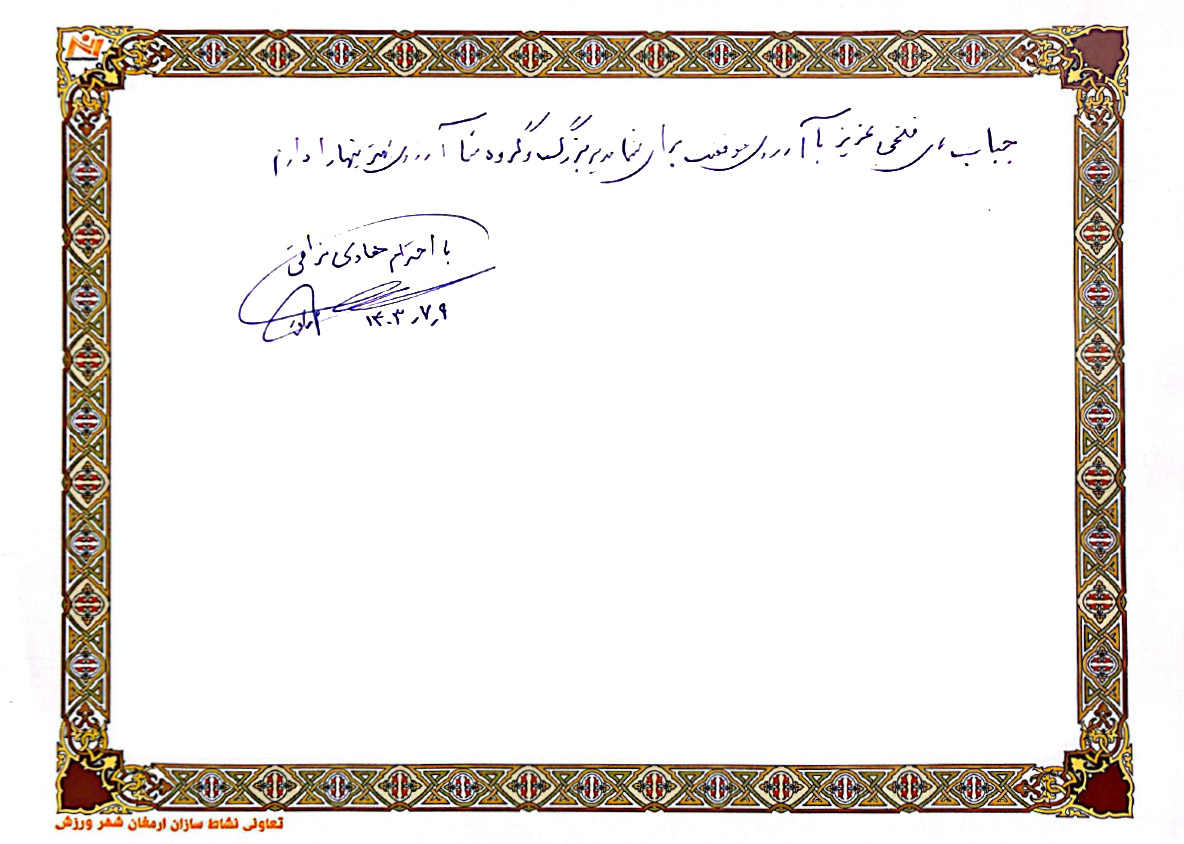 جناب آقای فتحی عزیز با آرزوی موفقیت برای شما مدیر بزرگ و گروه شما آرزوی بهترینها را دارم
با احترام هادی
۱۴۰۳٫۷٫۹
تعاونی نشاط سازان ارمغان شهر ورزش